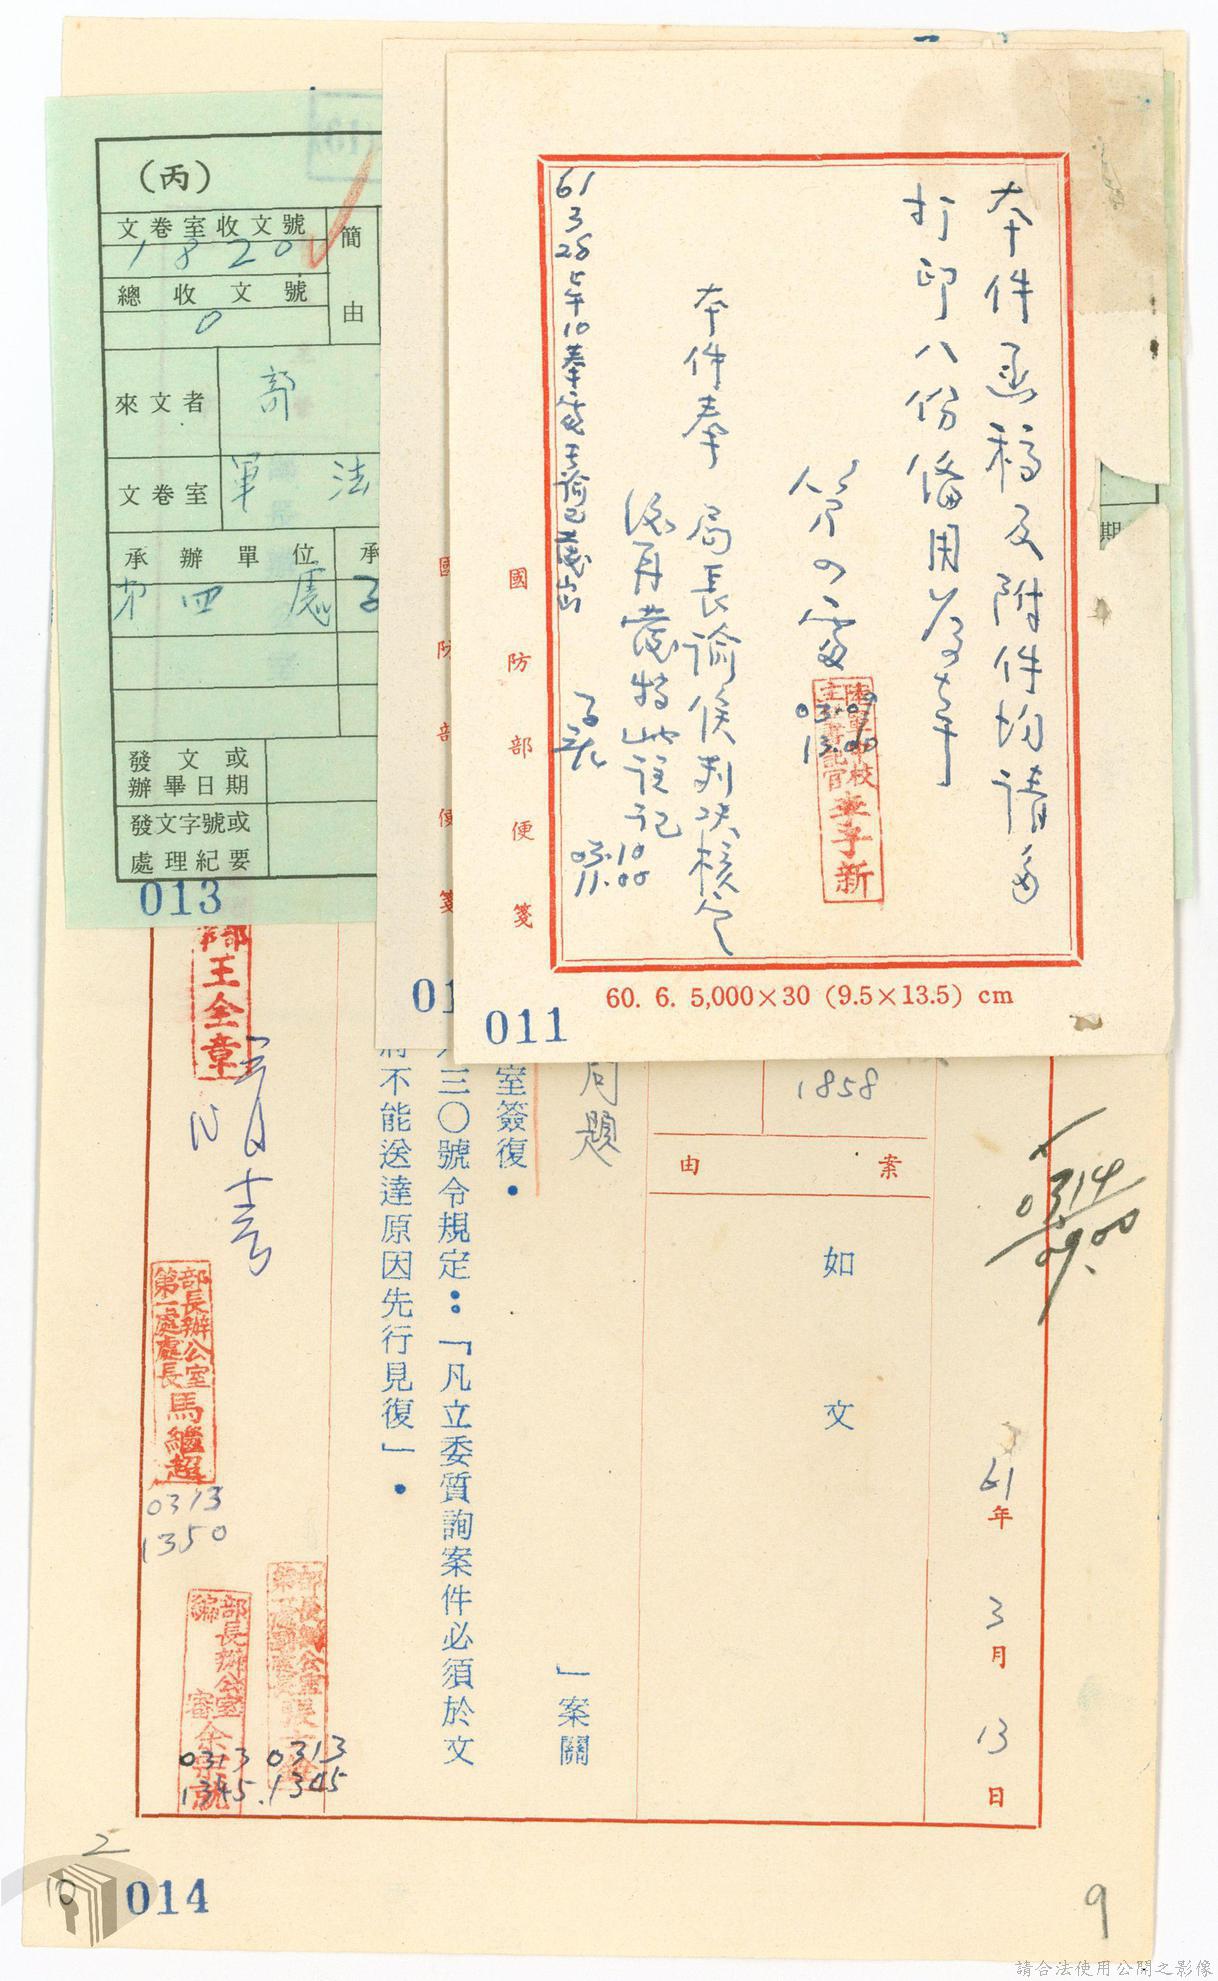 本件函稿及附件均請多
打印八份備用為幸
第四處
03.09
13.00
陸軍中校
主任書記官
李子新
本件奉 局長諭俟判決核定
後再發特此註記
03.10
11.00
61
3
28
上午10奉
國防部便箋
60. 6. 5,000×30 (9.5×13.5) cm
011
國防部便箋
01
(丙)
文卷室收文號
1820
總收文號
0
簡由
來文者
部
文卷室
軍法
承辦單位
承
第四處
發文或
辦畢日期
發文字號或
處理紀要
013
期
1858
案由
如文
0314
09.00
61年3月13日
問題
」案關
室簽復。
三〇號令規定：「凡立委質詢案件必須於文
不能送達原因先行見復」。
部
王全章
部長辦公室
第一處處長
馬繼超
0313
1350
部長辦公室
編審
余
0313
1345
0313
1345
2
10
014
9
請合法使用公開之影像